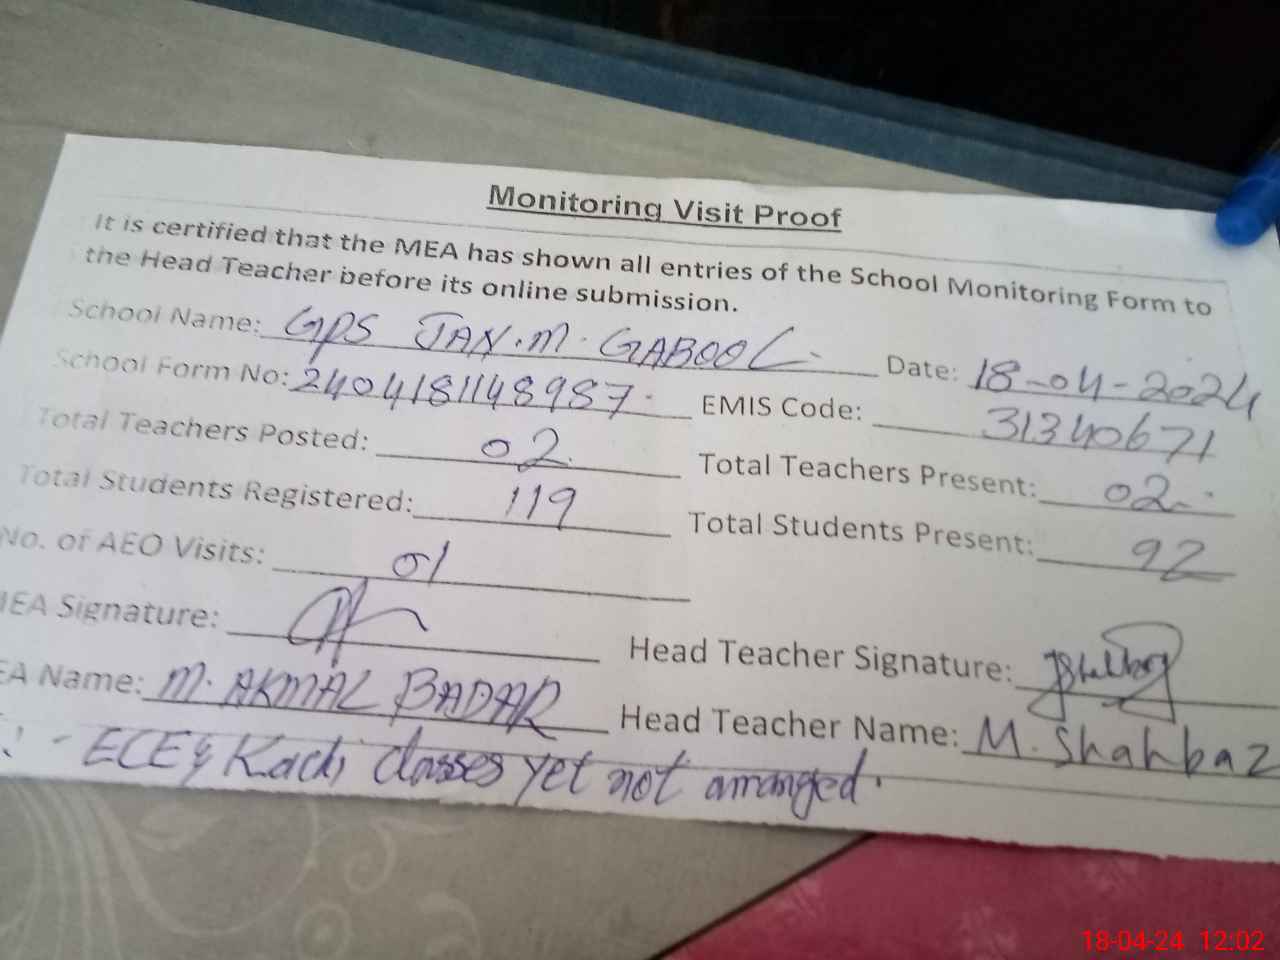 Monitoring Visit Proof
It is certified that the MEA has shown all entries of the School Monitoring Form to
the Head Teacher before its online submission.
School Name: GPS JAN.M. GABOOL Date: 18-04-2024
School Form No: 2404181148987 EMIS Code: 31340671
Total Teachers Posted: 02 Total Teachers Present: 02
Total Students Registered: 119 Total Students Present: 92
No. of AEO Visits: 01
MEA Signature: Head Teacher Signature:
EA Name: M. AKMAL BADAR Head Teacher Name: M. Shahbaz
- ECE & Kachi classes yet not arranged.
18-04-24 12:02